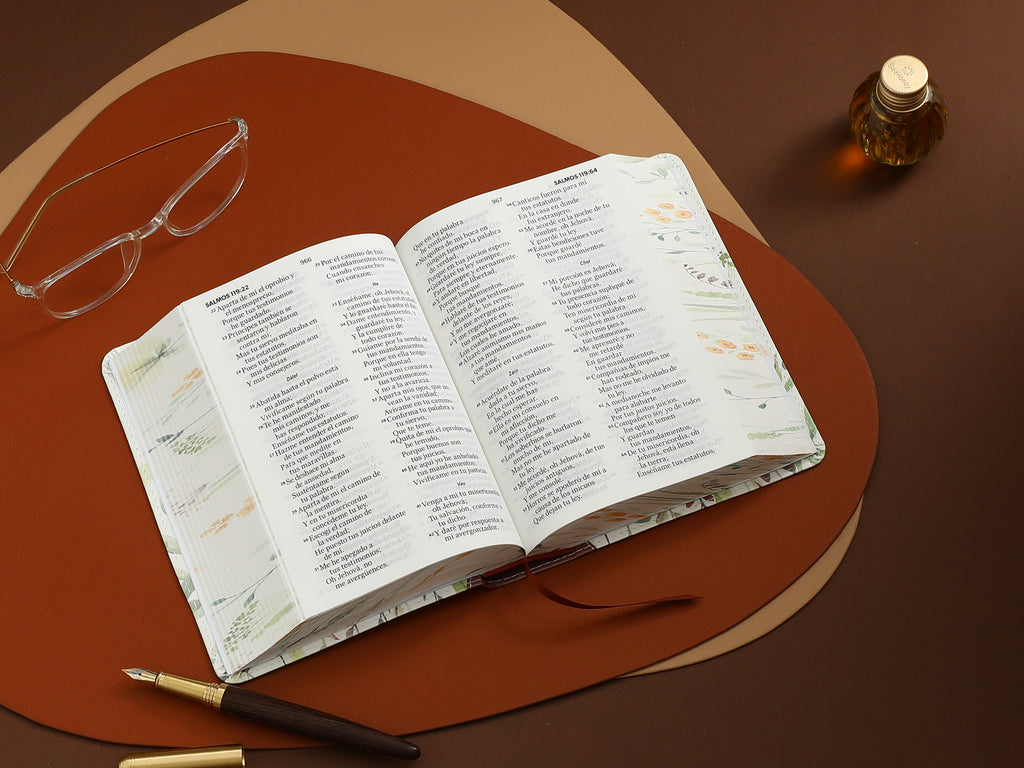 966
SALMOS 119:22
22 Aparta de mí el oprobio y
el menosprecio,
Porque tus testimonios
he guardado.
23 Príncipes también se
sentaron y hablaron
contra mí;
Mas tu siervo meditaba en
tus estatutos,
24 Pues tus testimonios son
mis delicias
Y mis consejeros.
Dálet
25 Abatida hasta el polvo está
mi alma;
Vivifícame según tu palabra.
26 Te he manifestado
mis caminos, y me
has respondido;
Enséñame tus estatutos.
27 Hazme entender el camino
de tus mandamientos,
Para que medite en
tus maravillas.
28 Se deshace mi alma
de ansiedad;
Susténtame según
tu palabra.
29 Aparta de mí el camino de
la mentira,
Y en tu misericordia
concédeme tu ley.
30 Escogí el camino de
la verdad;
He puesto tus juicios delante
de mí.
31 Me he apegado a
tus testimonios;
Oh Jehová, no
me avergüences.
32 Por el camino de tus
mandamientos correré,
Cuando ensanches
mi corazón.
He
33 Enséñame, oh Jehová, el
camino de tus estatutos,
Y lo guardaré hasta el fin.
34 Dame entendimiento, y
guardaré tu ley,
Y la cumpliré de
todo corazón.
35 Guíame por la senda de
tus mandamientos,
Porque en ella tengo
mi voluntad.
36 Inclina mi corazón a
tus testimonios,
Y no a la avaricia.
37 Aparta mis ojos, que no
vean la vanidad;
Avívame en tu camino.
38 Confirma tu palabra a
tu siervo,
Que te teme.
39 Quita de mí el oprobio que
he temido,
Porque buenos son
tus juicios.
40 He aquí yo he anhelado
tus mandamientos;
Vivifícame en tu justicia.
Vau
41 Venga a mí tu misericordia,
oh Jehová;
Tu salvación, conforme a
tu dicho.
42 Y daré por respuesta a
mi avergonzador,
967
SALMOS 119:64
Que en tu palabra
he confiado.
43 No quites de mi boca en
ningún tiempo la palabra
de verdad,
Porque en tus juicios espero.
44 Guardaré tu ley siempre,
Para siempre y eternamente.
45 Y andaré en libertad,
Porque busqué
tus mandamientos.
46 Hablaré de tus testimonios
delante de los reyes,
Y no me avergonzaré;
47 Y me regocijaré en
tus mandamientos,
Los cuales he amado.
48 Alzaré asimismo mis manos
a tus mandamientos
que amé,
Y meditaré en tus estatutos.
Zain
49 Acuérdate de la palabra
dada a tu siervo,
En la cual me has
hecho esperar.
50 Ella es mi consuelo en
mi aflicción,
Porque tu dicho me
ha vivificado.
51 Los soberbios se burlaron
mucho de mí,
Mas no me he apartado de
tu ley.
52 Me acordé, oh Jehová, de tus
juicios antiguos,
Y me consolé.
53 Horror se apoderó de mí a
causa de los inicuos
Que dejan tu ley.
54 Cánticos fueron para mí
tus estatutos
En la casa en donde
fui extranjero.
55 Me acordé en la noche de tu
nombre, oh Jehová,
Y guardé tu ley.
56 Estas bendiciones tuve
Porque guardé
tus mandamientos.
Chet
57 Mi porción es Jehová;
He dicho que guardaré
tus palabras.
58 Tu presencia supliqué de
todo corazón;
Ten misericordia de mí
según tu palabra.
59 Consideré mis caminos,
Y volví mis pies a
tus testimonios.
60 Me apresuré y no
me retardé
En guardar
tus mandamientos.
61 Compañías de impíos me
han rodeado,
Mas no me he olvidado de
tu ley.
62 A medianoche me levanto
para alabarte
Por tus justos juicios.
63 Compañero soy yo de todos
los que te temen
Y guardan
tus mandamientos.
64 De tu misericordia, oh
Jehová, está llena
la tierra;
Enséñame tus estatutos.